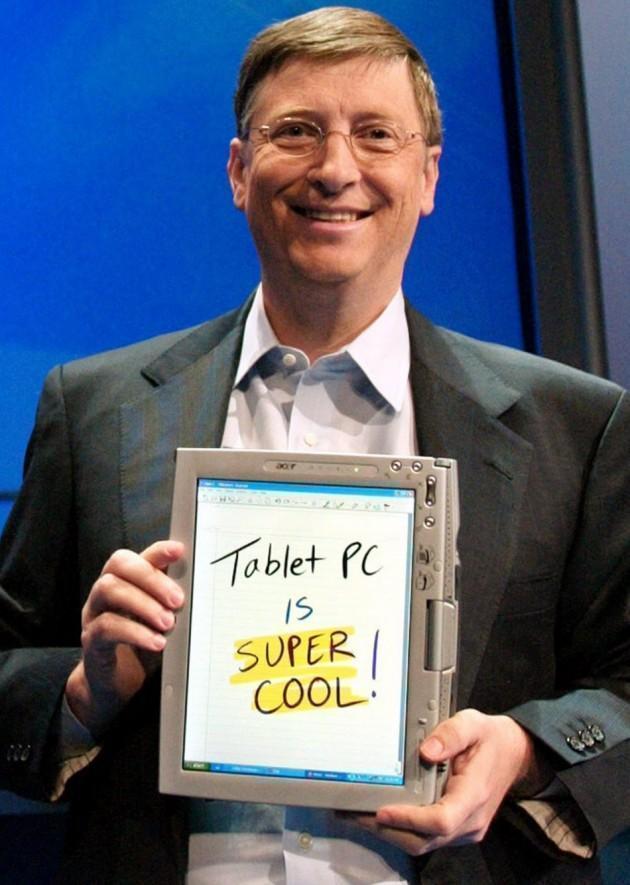 acer
Tablet PC
IS
SUPER
COOL!